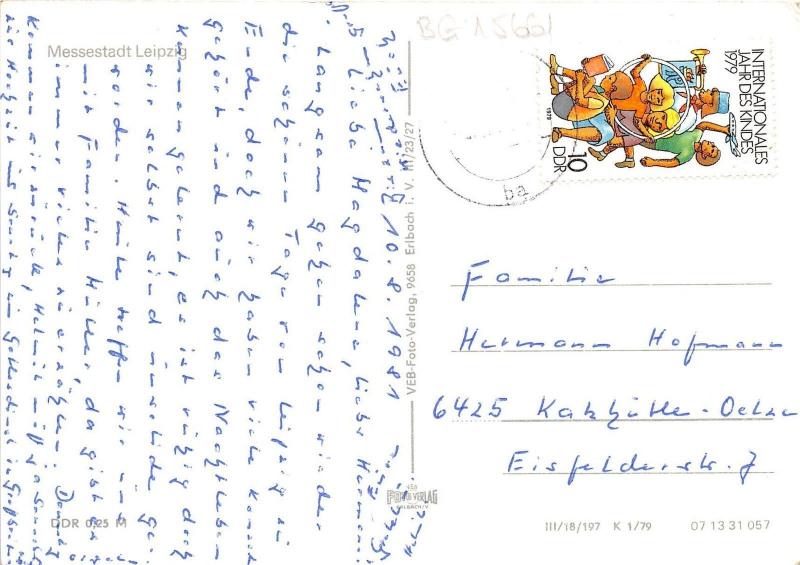 BG 15661
Messestadt Leipzig
INTERNATIONALES
JAHR DES KINDES
1979
1979
DDR 10
ba
Leipzig 10.8.1981
Liebe Magdalena, lieber Hermann!
Langsam gehen schon wieder
die schönen Tage von Leipzig zu
Ende, doch wir haben viele Konzerte
gehört und auch das Nachtleben
kennen gelernt, es ist ruhig doch
wir selbst sind unruhige ge-
worden. Heute treffen wir uns
mit Familie Müller, da gibt es
immer vieles zu erzählen.
kommen wir zurück, Helmit muß
zur Hochzeit ins im Gottesdienst in
VEB-Foto-Verlag, 9658 Erlbach i. V. III/23/27
Familie
Hermann Hofmann
6425 Katzhütte-Oelze
Eisfelderstr. 7
DDR 0,25 M
FOTO VERLAG
ERLBACH/V.
III/18/197 K 1/79 07 13 31 057